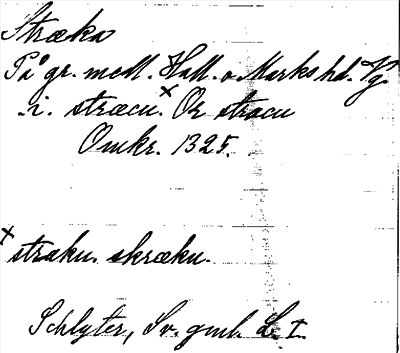 Stræka
På gr. mell. Hall. o. Marks hd. Vg.
i. stræcu.x Or stracu
Omkr. 1325.
x stræku. skræku.
Schlyter, Sv. gml. L. I.